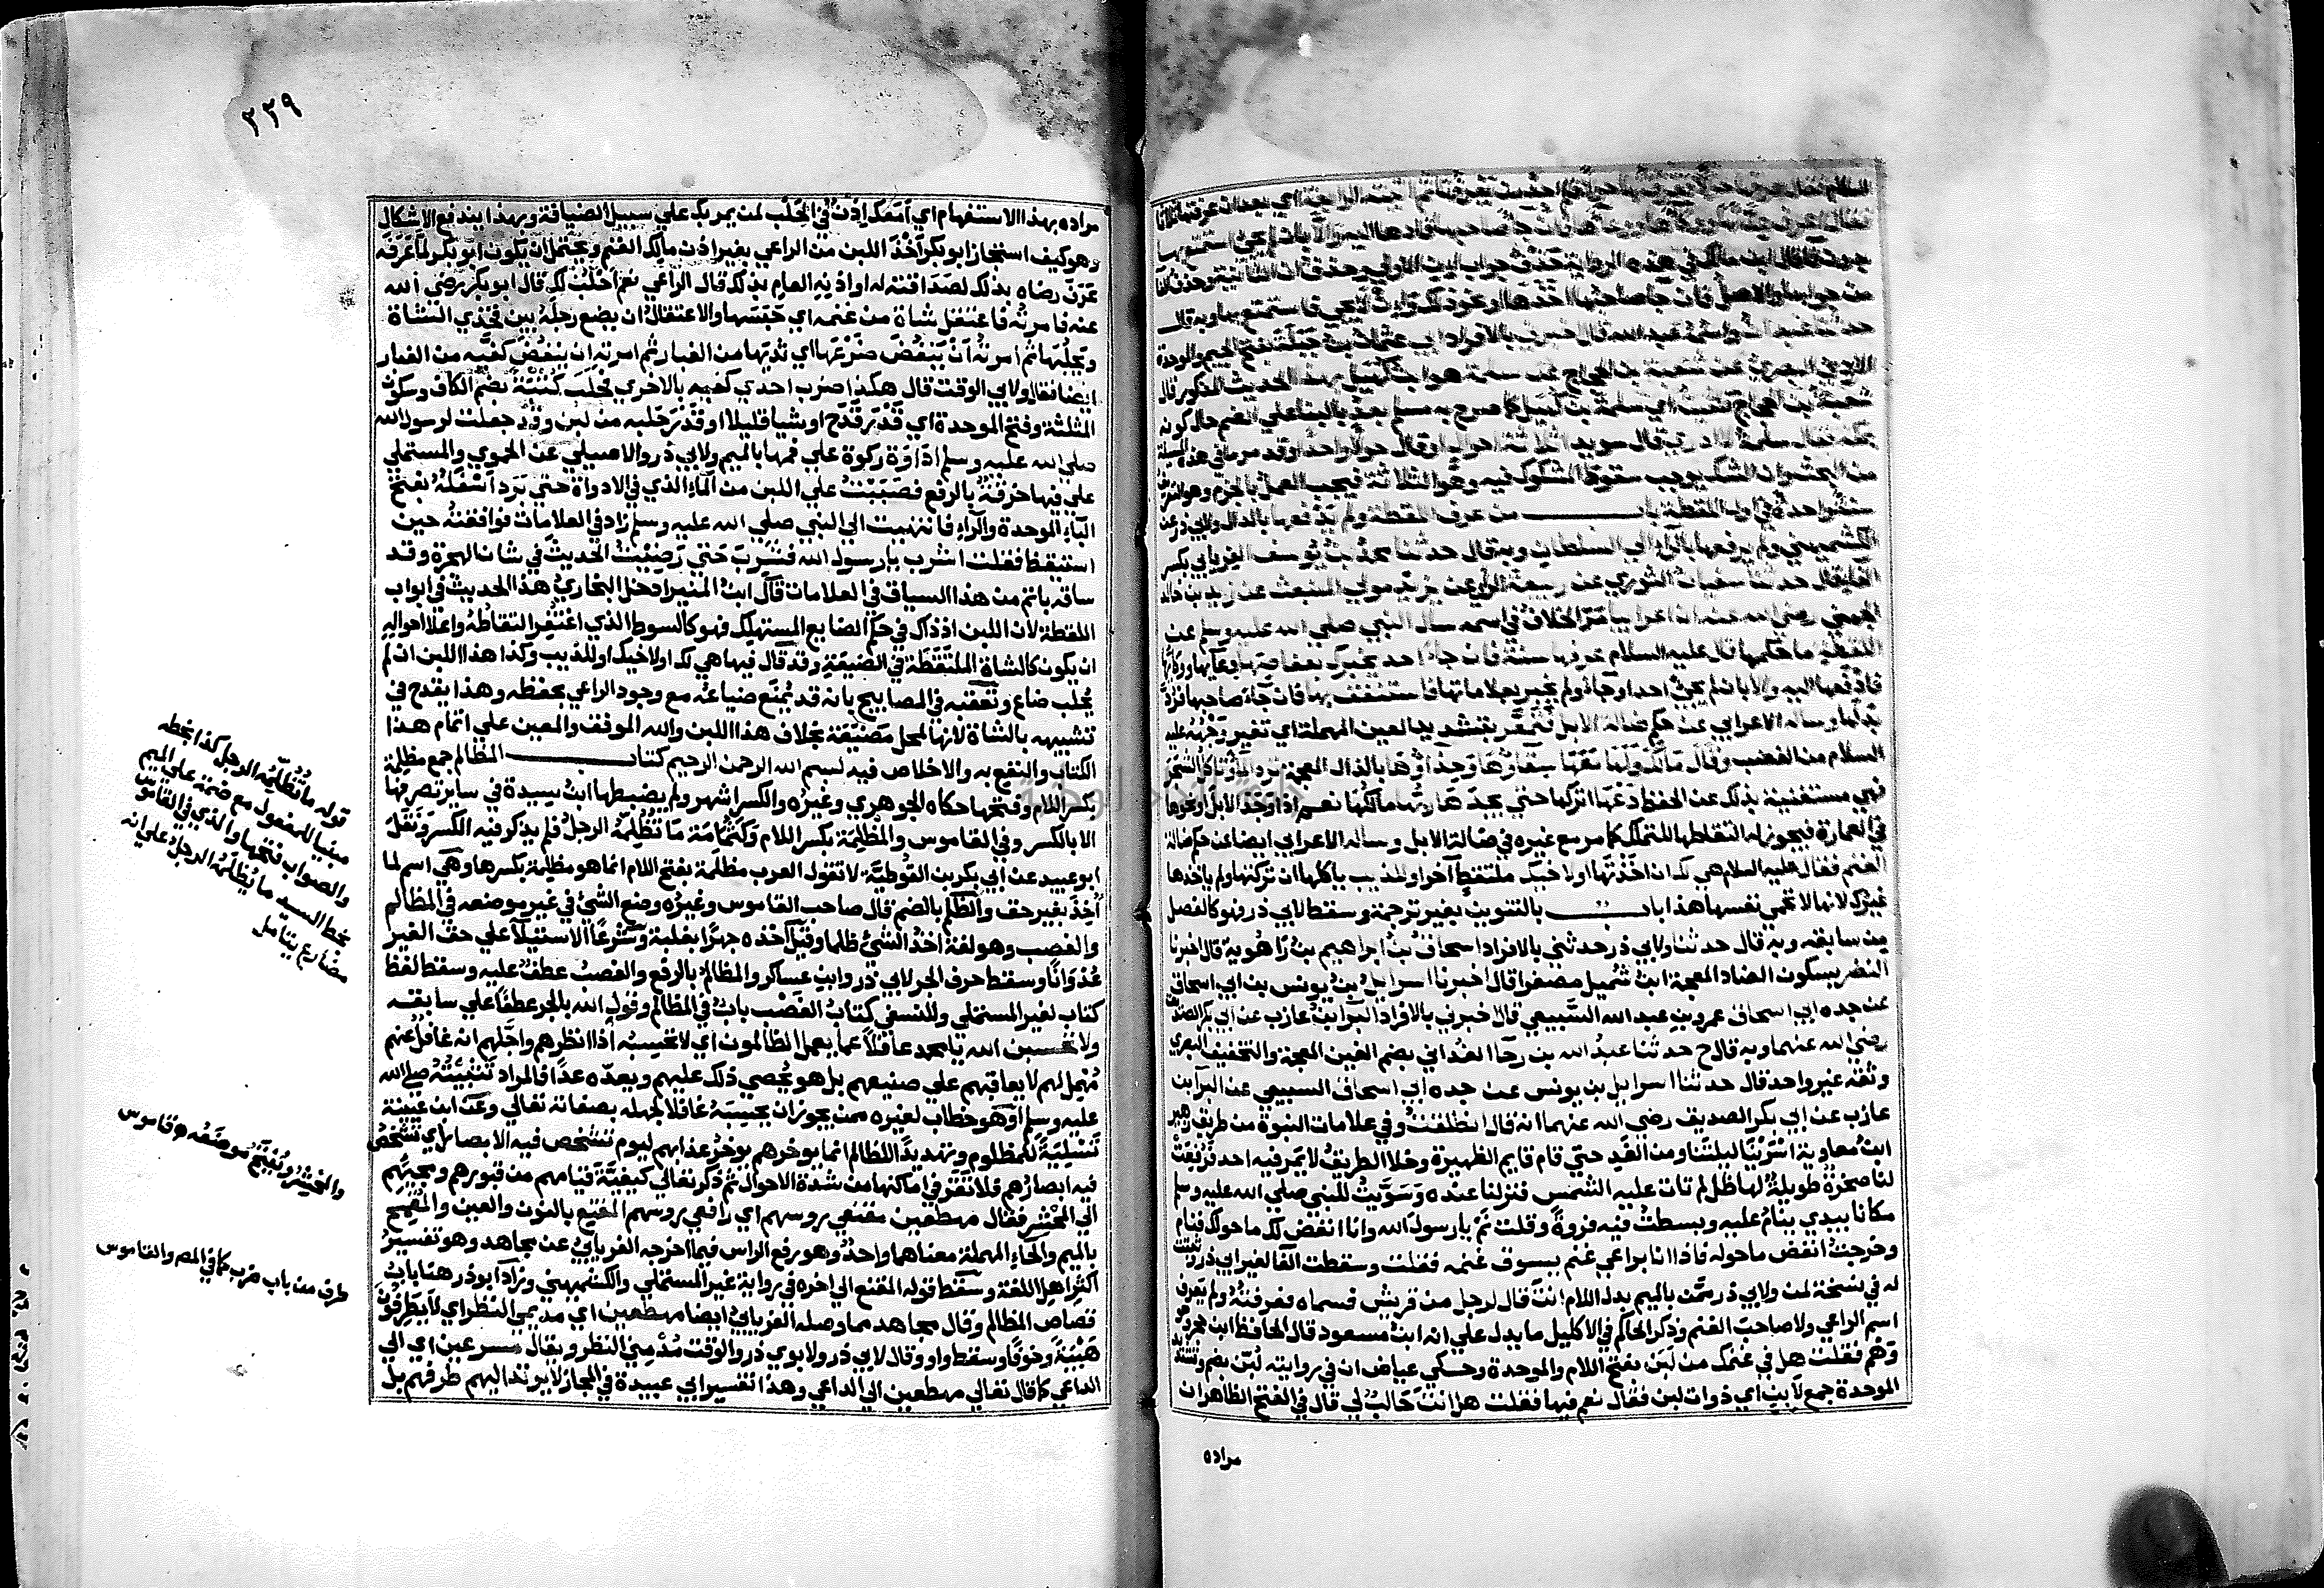 السلام فقال عرفها حولا فعرفتها حولا فلم اجد من يعرفها ثم اتيته الرابعة اي بعد ان عرفتها ثلاثا
فقال اعرف عدتها ووكاءها ووعاءها فان جاء صاحبها فادها اليه والا بان لم يجئ استمتع بها
من جوابها والاصل فان جا صاحبها اخذها او نحو ذلك وان لم يجي فاستمتع بها وبه قال
شعبة بن الحجاج
بمكة فقال سلمة لا ادري قال سويد اثلاثة احوال او قال حولا واحدا وقد مر ما في هذه المسئلة
من البحث وان الشك يوجب سقوط المشكوك فيه وهو الثلاثة فيجب العمل بالجزم وهو التعريف
سنة واحدة في اول اللقطة باب من عرف اللقطة ولم يدفعها بالدال ولابي ذر عن
الكشميهني ولم يرفعها بالراء الي السلطان وبه قال حدثنا محمد بن يوسف الفريابي بكسر
الفا قال حدثنا سفيان الثوري عن ربيعة الراي عن يزيد مولي المنبعث عن زيد بن خالد
الجهني رضي الله عنه ان اعرابيا مر الخلاف في اسمه سال النبي صلي الله عليه وسلم عن
اللقطة ما حكمها قال عليه السلام عرفها سنة فان جا احد يخبرك بعفاصها وعائها ووكائها
فادفعها اليه والا بان لم يجئ احد او جاء ولم يخبر بعلاماتها فاستنفق بها فان جاء صاحبها فردَّ
بدلها وساله الاعرابي عن حكم ضالة الابل فتمعَّر بتشديد العين المهملة اي تغير وجهه عليه
السلام من الغضب وقال مالك ولها معها سقاؤها وحذاؤها بالذال المعجمة ترد الماء وتاكل الشجر
فهي مستغنية بذلك عن الحفظ دعها اتركها حتي يجدها ربها مالكها نعم اذا وجد الابل او نحوها
في العمارة فيجوز له التقاطها للتملك كما مر مع غيره في ضالة الابل وساله الاعرابي ايضا عن حكم ضالة
الغنم فقال عليه السلام هي لك ان اخذتها او لاخيك ملتقط آخر او للذيب ياكلها ان تركتها ولم ياخذها
غيرك لانها لا تحمي نفسها هذا باب بالتنوين بغير ترجمة وسقط لابي ذر فهو كالفصل
من سابقه وبه قال حدثنا ولابي ذر حدثني بالافراد اسحاق بن ابراهيم بن راهوية قال اخبرنا
النضر بسكون الضاد المعجمة ابن شميل مصغرا قال اخبرنا اسرايل بن يونس بن ابي اسحاق
عن جده ابي اسحاق عمرو بن عبد الله السَّبيعي قال اخبرني بالافراد البرا بن عازب عن ابي بكر الصديق
رضي الله عنهما وبه قال ح حدثنا عبد الله بن رجآ الغداني بضم الغين المعجمة والتخفيف البصري
وثقه غير واحد قال حدثنا اسرايل بن يونس عن جده ابي اسحاق السبيعي عن البرآ بن
عازب عن ابي بكر الصديق رضي الله عنهما انه قال انطلقت وفي علامات النبوة من طريق زهير
ابن معاوية اسرينا ليلتنا ومن الغد حتي قام قايم الظهيرة وخلا الطريق لا يمر فيه احد فرفعت
لنا صخرة طويلة لها ظل لم تات عليه الشمس فنزلنا عنده وسويت للنبي صلي الله عليه وسلم
مكانا بيدي ينام عليه وبسطت فيه فروة وقلت نم يا رسول الله وانا انفض لك ما حولك فنام
وخرجت انفض ما حوله فاذا انا براعي غنم يسوق غنمه فقلت وسقطت الفا لغير ابي ذر وثبتت
له في نسخة لمن ولابي ذر ممن بالميم بدل اللام انت قال لرجل من قريش فسماه فعرفته ولم يعرف
اسم الراعي ولا صاحب الغنم وذكر الحاكم في الاكليل ما يدل علي انه ابن مسعود قال الحافظ ابن حجر وهو
وهم فقلت هل في غنمك من لبن بفتح اللام والموحدة وحكي عياض ان في روايته لبن بضم وتشديد
الموحدة جمع لابن اي ذوات لبن فقال نعم فيها فقلت هل انت حالب لي قال في الفتح الظاهر ان
مراده
٣٣٩
مراده بهذا الاستفهام اي امعك اذن في الحلب لمن يمر بك علي سبيل الضيافة وبهذا يندفع الاشكال
وهو كيف استجاز ابو بكر اخذ اللبن من الراعي بغير اذن مالك الغنم ويحتمل ان يكون ابو بكر لما عرفه
عرف رضاه بذلك لصداقته له او اذنه العام بذلك قال الراعي نعم احلب لك قال ابو بكر رضي الله
عنه فامرته فاعتقل شاة من غنمه اي حبسها والاعتقال ان يضع رجله بين فخذي الشاة
ويحلبها ثم امرته ان ينفض ضرعها اي ثديها من الغبار ثم امرته ان ينفض كفيه من الغبار
ايضا فقال ولابي الوقت قال هكذا ضرب احدي كفيه بالاخري فحلب كثبة بضم الكاف وسكون
المثلثة وفتح الموحدة اي قدر قدح او شيا قليلا او قدر حلبه من لبن وقد جعلت لرسول الله
صلي الله عليه وسلم اداوة ركوة علي فمها بالميم ولابي ذر والاصيلي عن الحموي والمستملي
علي فيها خرقة بالرفع فصببت علي اللبن من الماء الذي في الاداوة حتي برد اسفله بفتح
الباء الموحدة والراء فانتهيت الي النبي صلي الله عليه وسلم زاد في العلامات فوافقته حين
استيقظ فقلت اشرب يا رسول الله فشرب حتي رضيت الحديث في شان الهجرة وقد
ساقه باتم من هذا السياق في العلامات قال ابن المنير ادخل البخاري هذا الحديث في ابواب
اللقطة لان اللبن اذ ذاك في حكم الضايع المستهلك فهو كالسوط الذي اغتفر التقاطه واعلا احواله
ان يكون كالشاة الملتقطة في الضيعة وقد قال فيها هي لك او لاخيك او للذيب وكذا هذا اللبن ان لم
يحلب ضاع وتعقبه في المصابيح بانه قد يمنع ضياعه مع وجود الراعي بحفظه وهذا يقدح في
تشبيهه بالشاة لانها لمحل مضيعة بخلاف هذا اللبن والله الموفق والمعين علي اتمام هذا
الكتاب والنفع به والاخلاص فيه لبسم الله الرحمن الرحيم كتاب المظالم جمع مظلمة
بكسر اللام وفتحها حكاه الجوهري وغيره والكسر اشهر ولم يضبطها ابن سيدة في ساير تصرفها
الا بالكسر وفي القاموس والمظلمة بكسر اللام وكثمامة ما تظلمه الرجل فلم يذكر فيه الكسر ونقل
ابو عبيد عن ابي بكر بن القوطية لا تقول العرب مظلمة بفتح اللام انما هو مظلمة بكسرها وهي اسم لما
اخذ بغير حق والظلم بالضم قال صاحب القاموس وغيره وضع الشئ في غير موضعه في المظالم
والغصب وهو لغة اخذ الشئ ظلما وقيل اخذه جهرا بغلبة وشرعا الاستيلا علي حق الغير
عدوانا وسقط حرف الجر لابي ذر وابن عساكر والمظالم بالرفع والغصب عطف عليه وسقط لفظ
كتاب لغير المستملي وللنسفي كتاب الغصب باب في المظالم وقول الله بالجر عطفا علي سابقه
ولا تحسبن الله يا محمد غافلا عما يعمل الظالمون اي لا تحسبنه اذا انظرهم واجلهم انه غافل عنهم
مهمل لهم لا يعاقبهم علي صنيعهم بل هو يحصي ذلك عليهم ويعده عدا فالمراد تثبيته صلي الله
عليه وسلم او هو خطاب لغيره ممن يجوز ان يحسبه غافلا لجهله بصفاته تعالي وعن ابن عيينة
تسلية للمظلوم وتهديدا للظالم انما يوخرهم يوخر عذابهم ليوم تشخص فيه الابصار اي تشخص
فيه ابصارهم فلا تقر في اماكنها من شدة الاحوال ثم ذكر تعالي كيفية قيامهم من قبورهم ومجيئهم
الي المحشر فقال مهطعين مقنعي روسهم اي رافعي روسهم المقنع بالنون والعين والمقمح
بالميم والحاء المهملة معناهما واحد وهو رفع الراس فيما اخرجه الفريابي عن مجاهد وهو تفسير
اكثر اهل اللغة وسقط قوله المقنع الي اخره في رواية غير المستملي والكشميهني وزاد ابو ذر هنا باب
قصاص المظالم وقال مجاهد مما وصله الفريابي ايضا مهطعين اي مديمي النظر اي لا يطرفون
هيبة وخوفا وسقط واو وقال لابي ذر ولابوي ذر والوقت مدمني النظر ويقال مسرعين اي الي
الداعي كما قال تعالي مهطعين الي الداعي وهذا تفسير ابي عبيدة في المجاز لا يرتد اليهم طرفهم بل
قوله ما تظلمه الرجل كذا بخطه
مبنيا للمفعول مع ضمة علي الميم
والصواب فتحها والذي في القاموس
بخط السيد ما يظلمه الرجل علي انه
مضارع يتامل
والمحشر ويفتح موضعه قاموس
طرف من باب ضرب كما في المص والقاموس